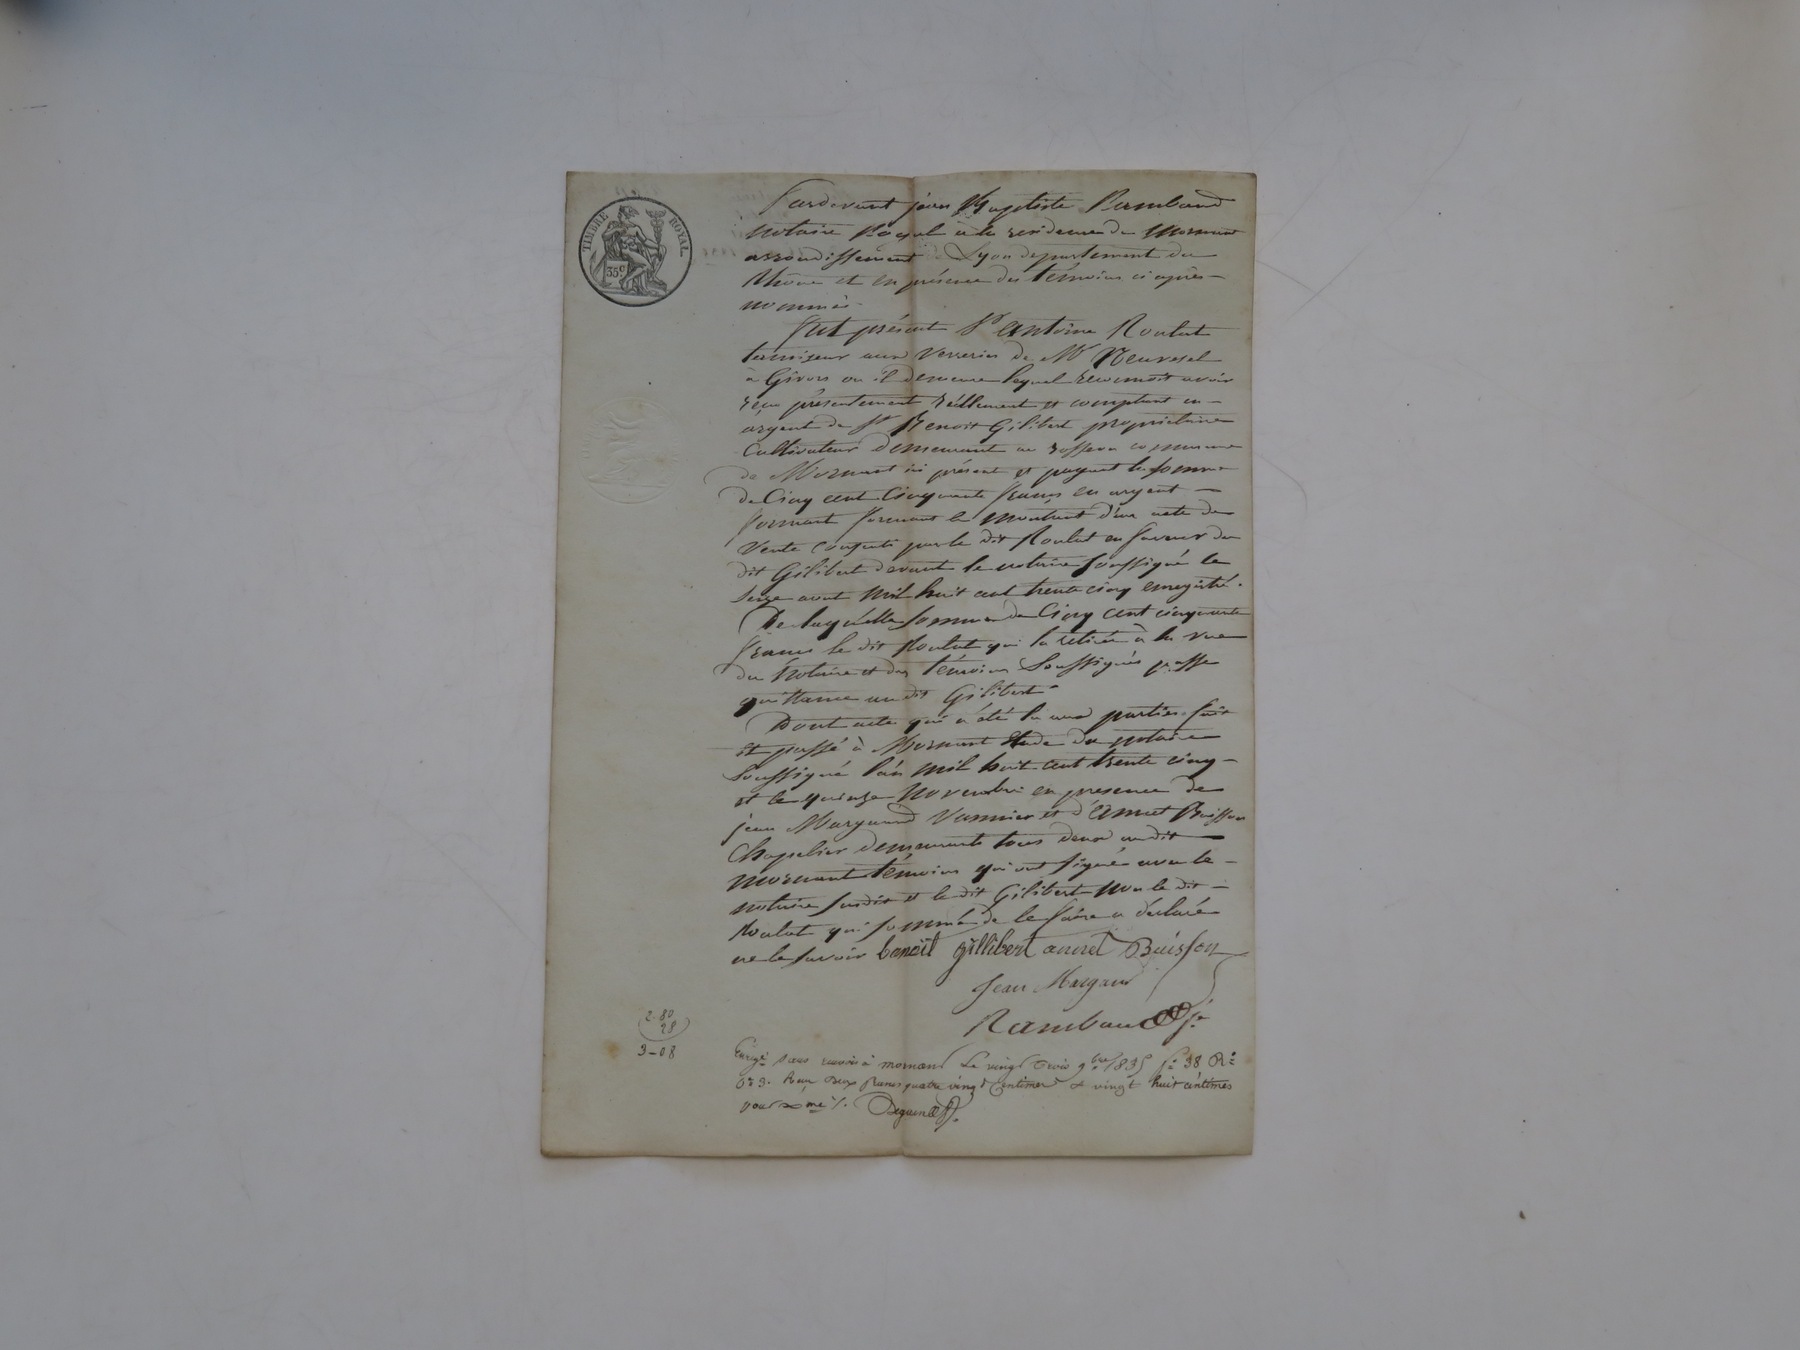 TIMBRE ROYAL
35c.
Pardevant jean Baptiste Rambaud
notaire Royal à la residence de Mornant
arrondissement de Lyon departement du
Rhône et en présence des témoins ci après
nommés.
fut présent Sr antoine Roulat
tamiseur aux Verreries de Mr Neuvesel
à Givors ou il demeure lequel reconnoit avoir
reçu présentement réellement et comptant en
argent de Sr Benoit Gilibert propriétaire
Cultivateur demeurant au rosseon commune
de Mornant ici présent et payant la somme
de Cinq cent Cinquante francs en argent
formant formant le montant d'un acte de
Vente consenti par le dit Roulat en faveur du
dit Gilibert devant le notaire soussigné le
seize aout mil huit cent trente cinq enregistré.
De laquelle somme de Cinq cent cinquante
francs le dit Roulat qui la retirée à la vue
du Notaire et des témoins Soussignés passe
quittance au dit Gilibert.
Dont acte qui a été lu aux parties fait
et passé à Mornant Etude du notaire
Soussigné l'an mil huit cent trente cinq
et le quinze Novembre en presence de
jean Margaund Vannier et d'Annet Buisson
Chapelier demeurants tous deux au dit
Mornant témoins qui ont signé avec le
notaire susdit et le dit Gilibert Non le dit
Roulat qui sommé de le faire a déclaré
ne le savoir benoit gillibert annet Buisson
Jean Margaun
Rambaud
2.80
28
3-08
Enregé sans renvois à mornant Le vingt trois 9bre 1835 fo 38 Ro
Cs 3. Reçu Deux francs quatre vingt Centimes & vingt huit centimes
pour xme /.